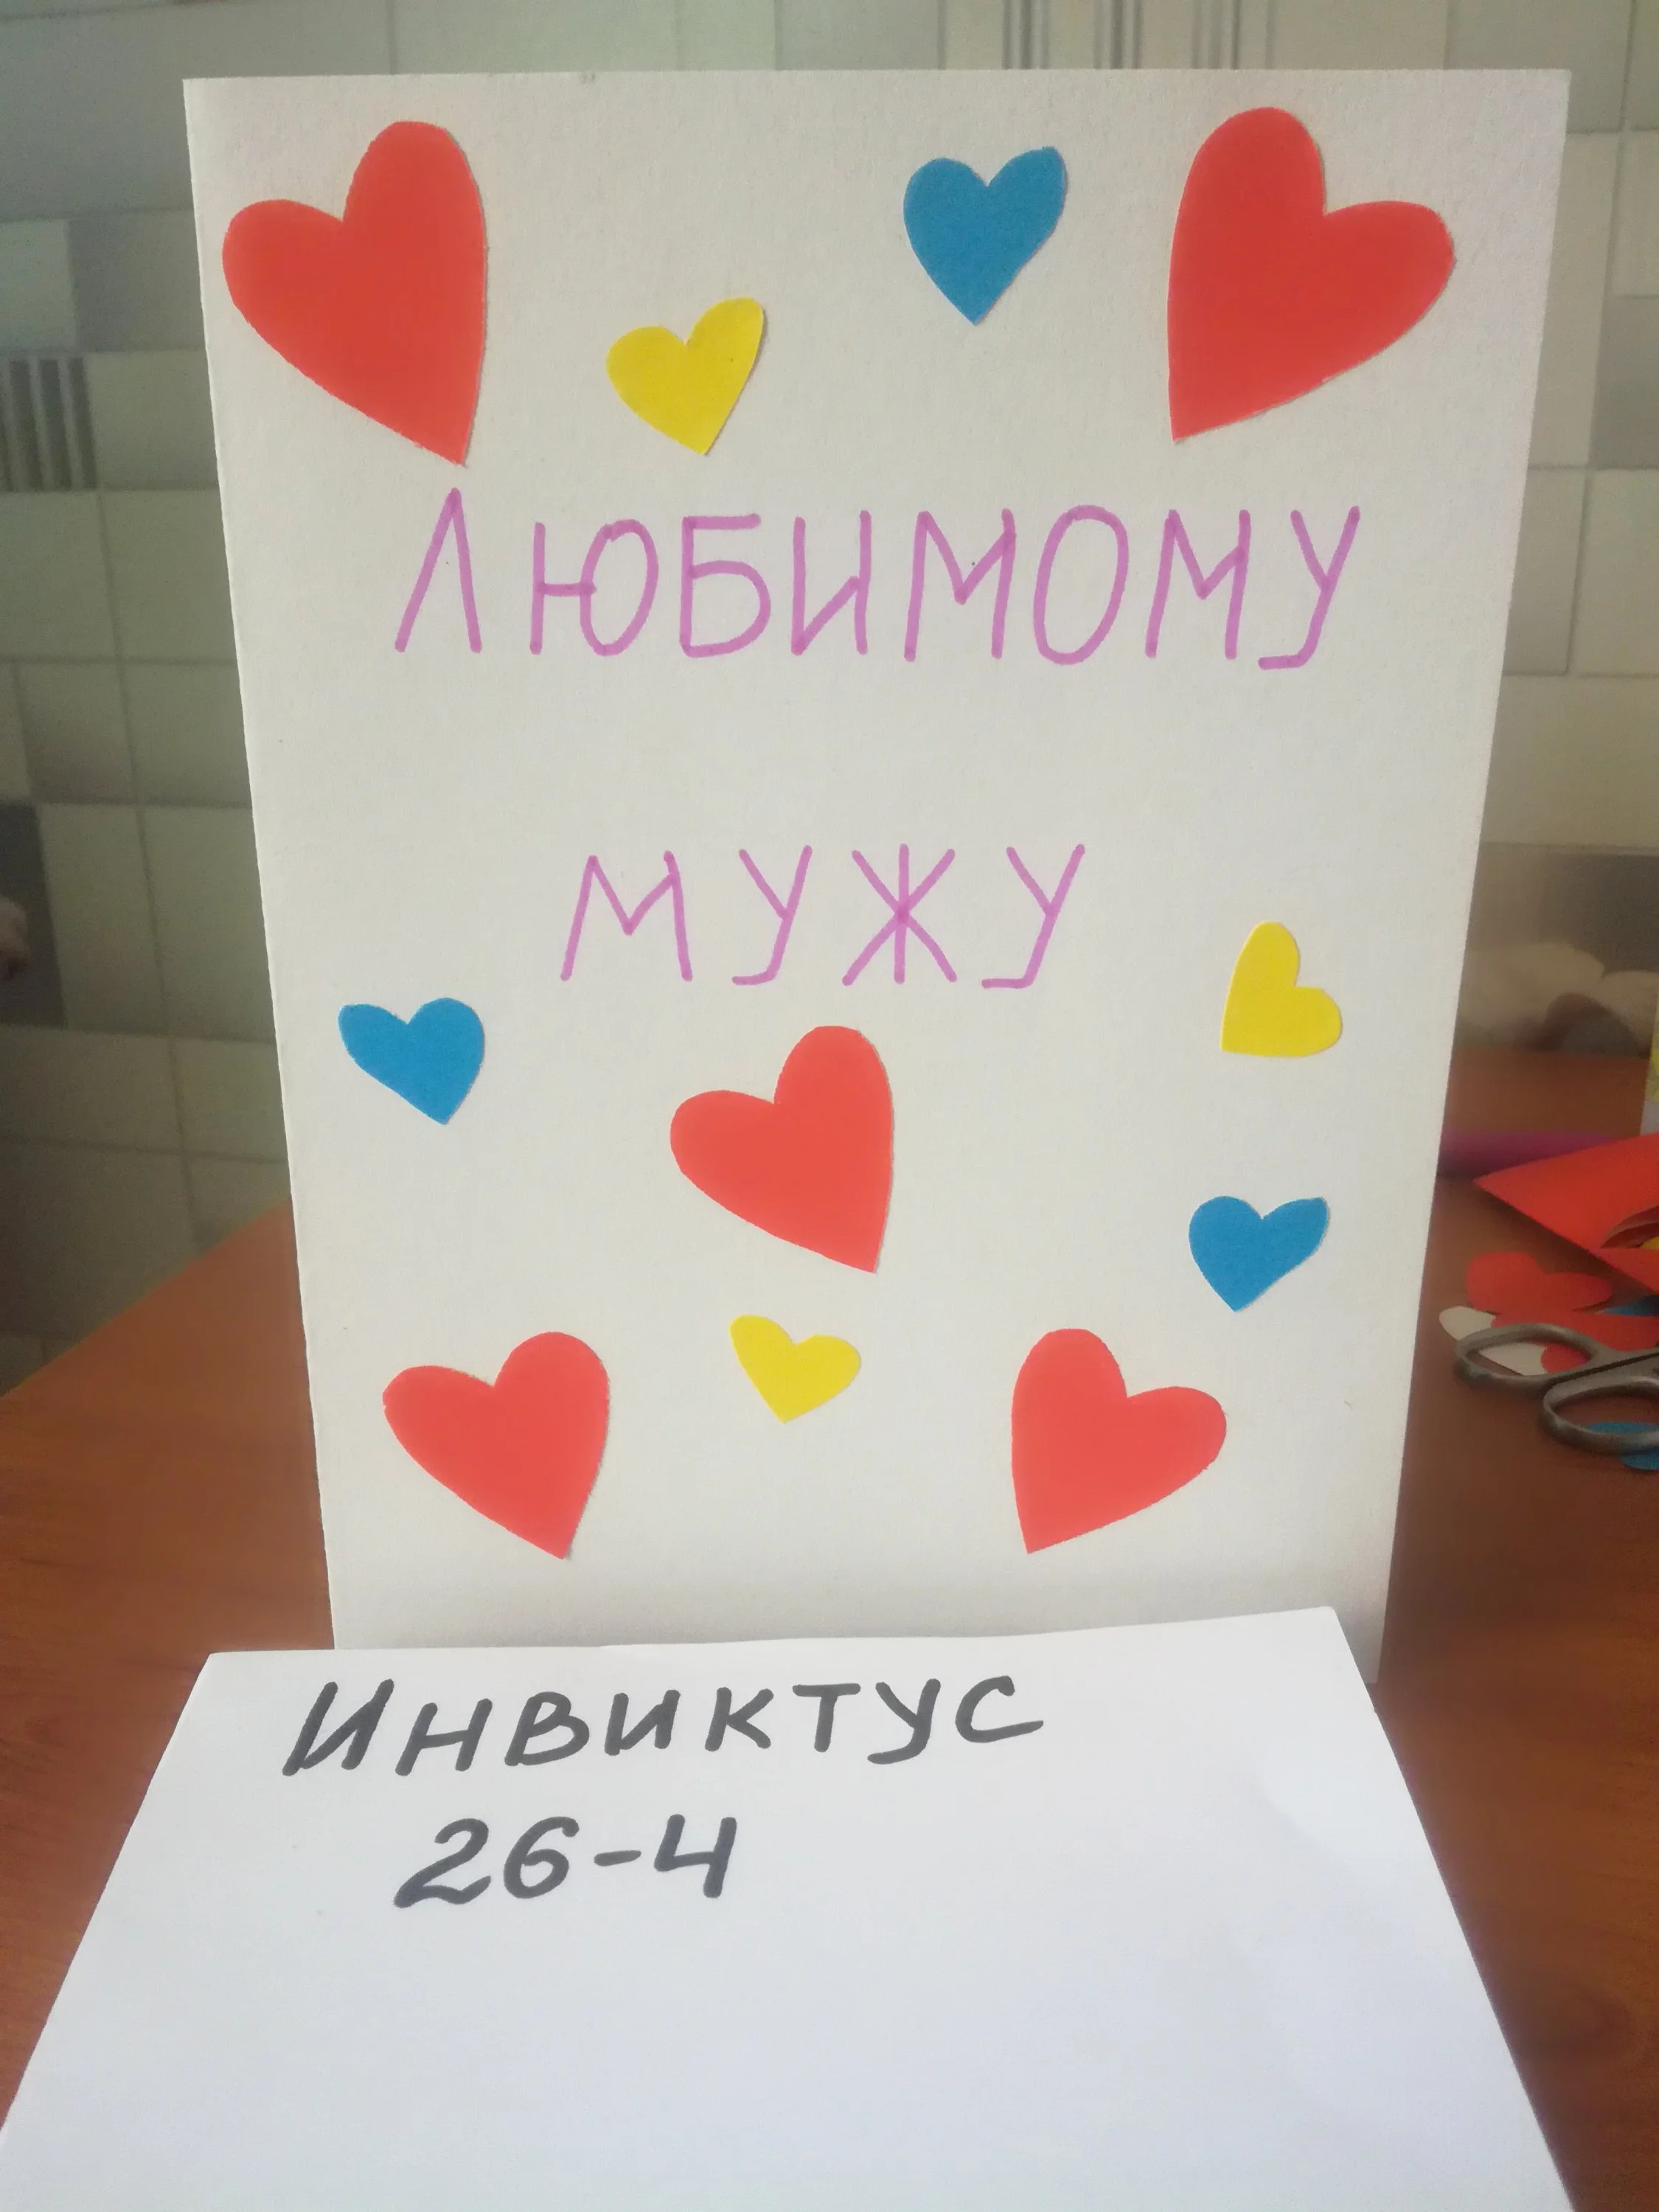 ЛЮБИМОМУ
МУЖУ
ИНВИКТУС
26-4